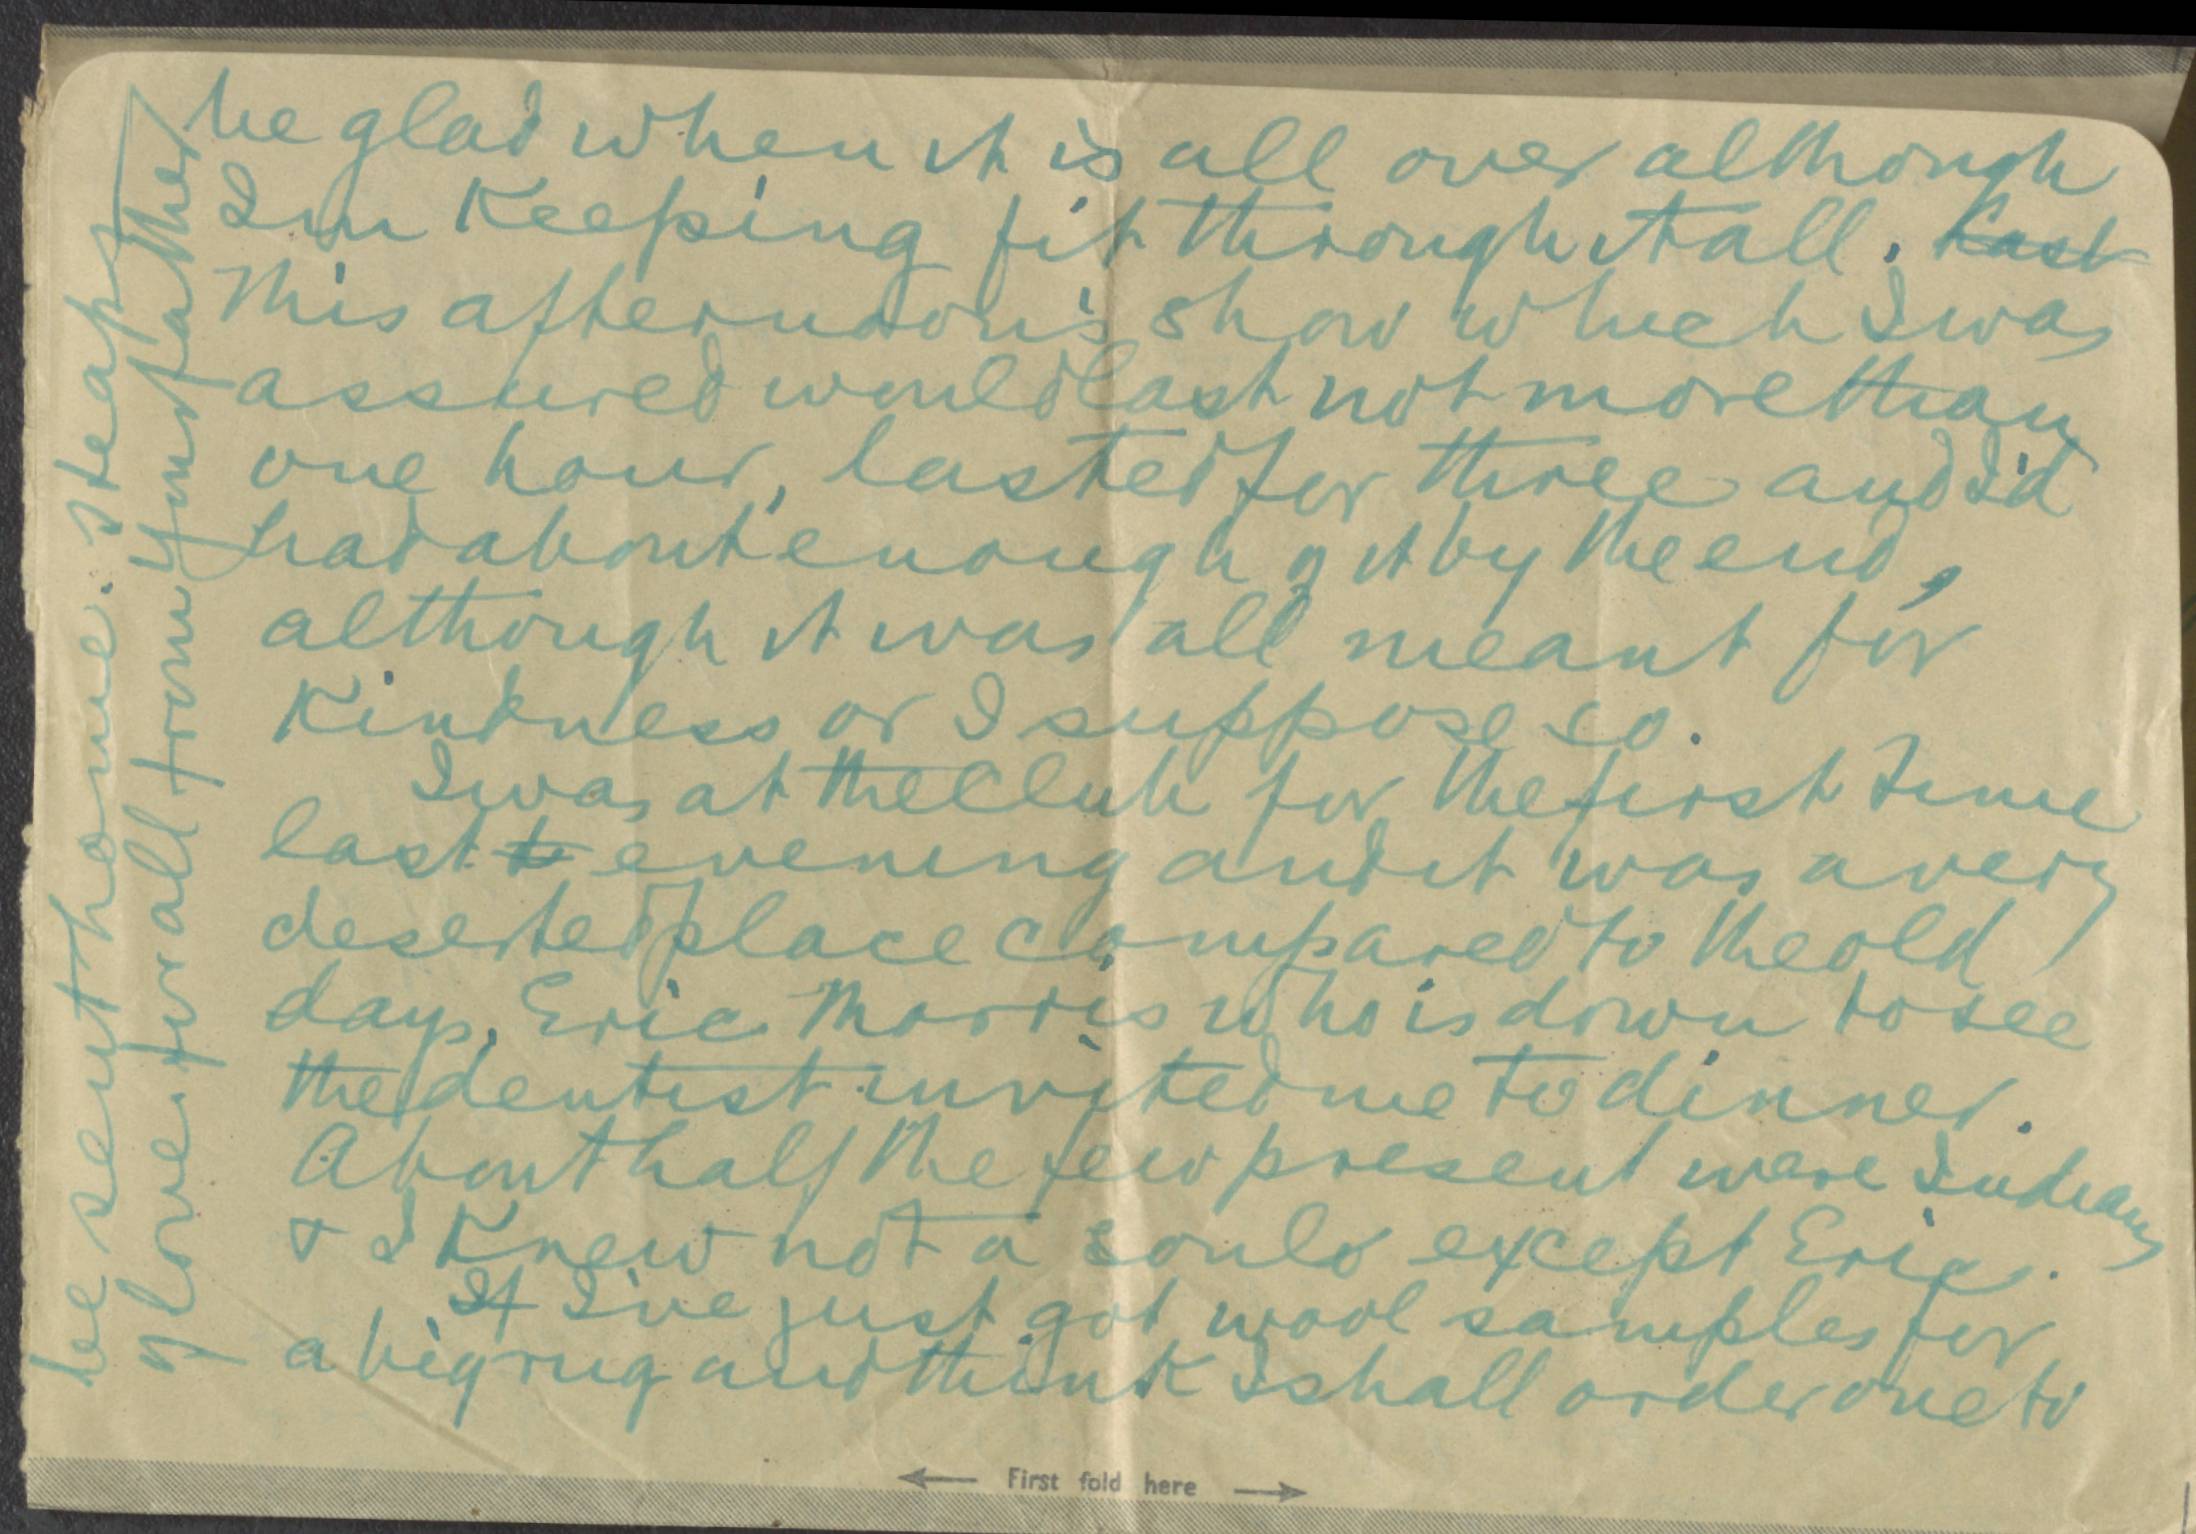 be glad when it is all over although
I'm keeping fit through it all. Last
This afternoon's show which I was
assured would last not more than
one hour, lasted for three and I'd
had about enough of it by the end,
although it was all meant for
Kindness or I suppose so.
I was at the Club for the first time
last to evening and it was a very
deserted place compared to the old
days. Eric Morris who is down to see
the dentist invited me to dinner.
About half the few present were Indians
& I knew not a soul except Eric.
If I've just got wool samples for
a big rug and think I shall order one to
be sent home. Heaps
of love for all from your father
← First fold here →